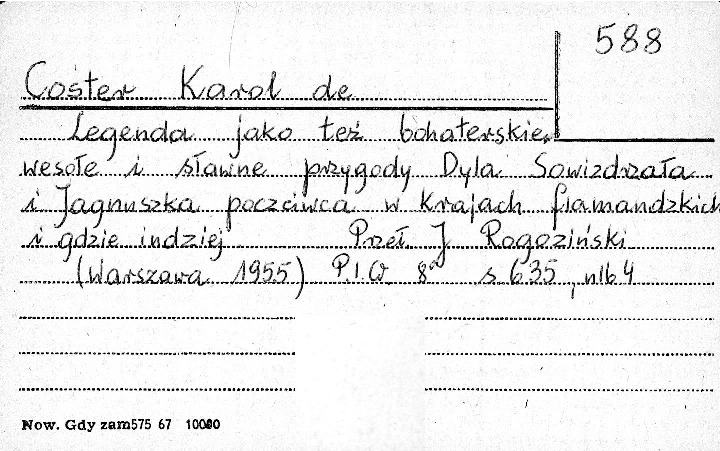 588
Coster Karol de
Legenda jako też bohaterskie,
wesołe i sławne przygody Dyla Sowizdrzała
i Jagnuszka poczciwca w krajach flamandzkich
i gdzie indziej Przeł. J. Rogoziński
(Warszawa 1955) P.I.W 8° s 635, nlb 4
Now. Gdy zam 575 67 10000